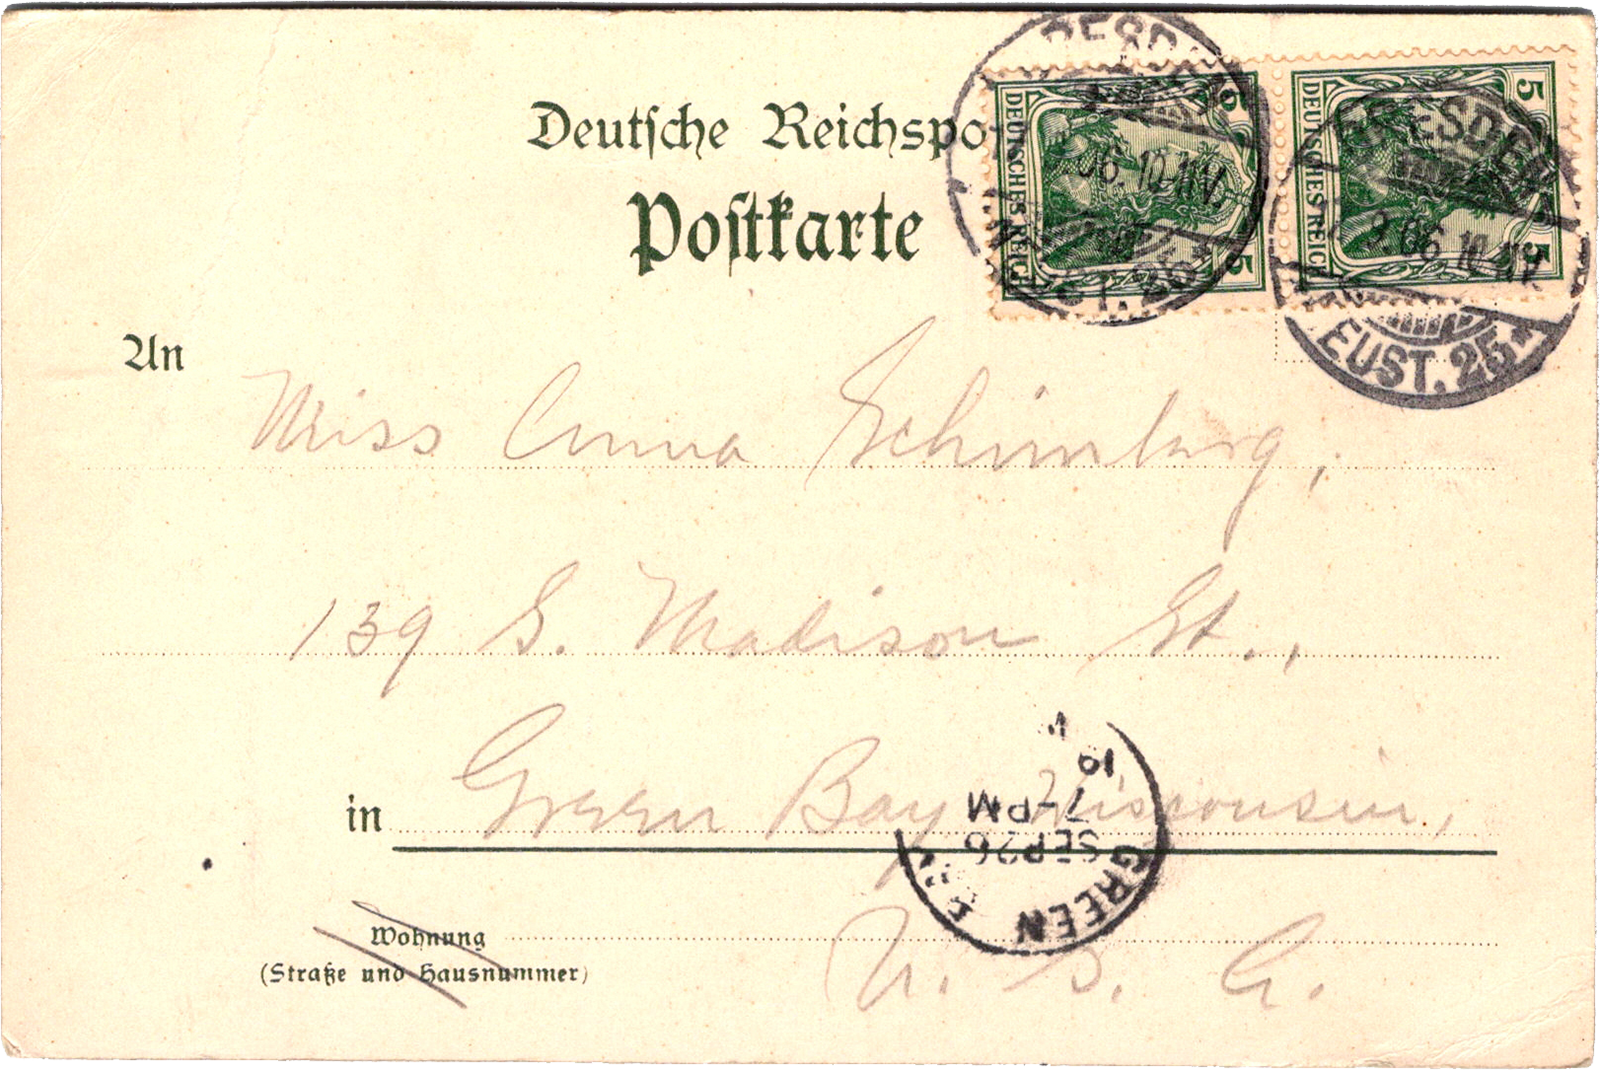 Deutsche Reichspo
Postkarte
5 DEUTSCHES REICH 5
5 DEUTSCHES REICH 5
06. 10-11 V.
DRESDEN
9 06. 10-11 V.
EUST. 25*
An
Miss Anna Schimberg,
139 S. Madison St.,
in Green Bay, Wisconsin,
U. S. A.
Wohnung
(Straße und Hausnummer)
GREEN
SEP 26
7-PM